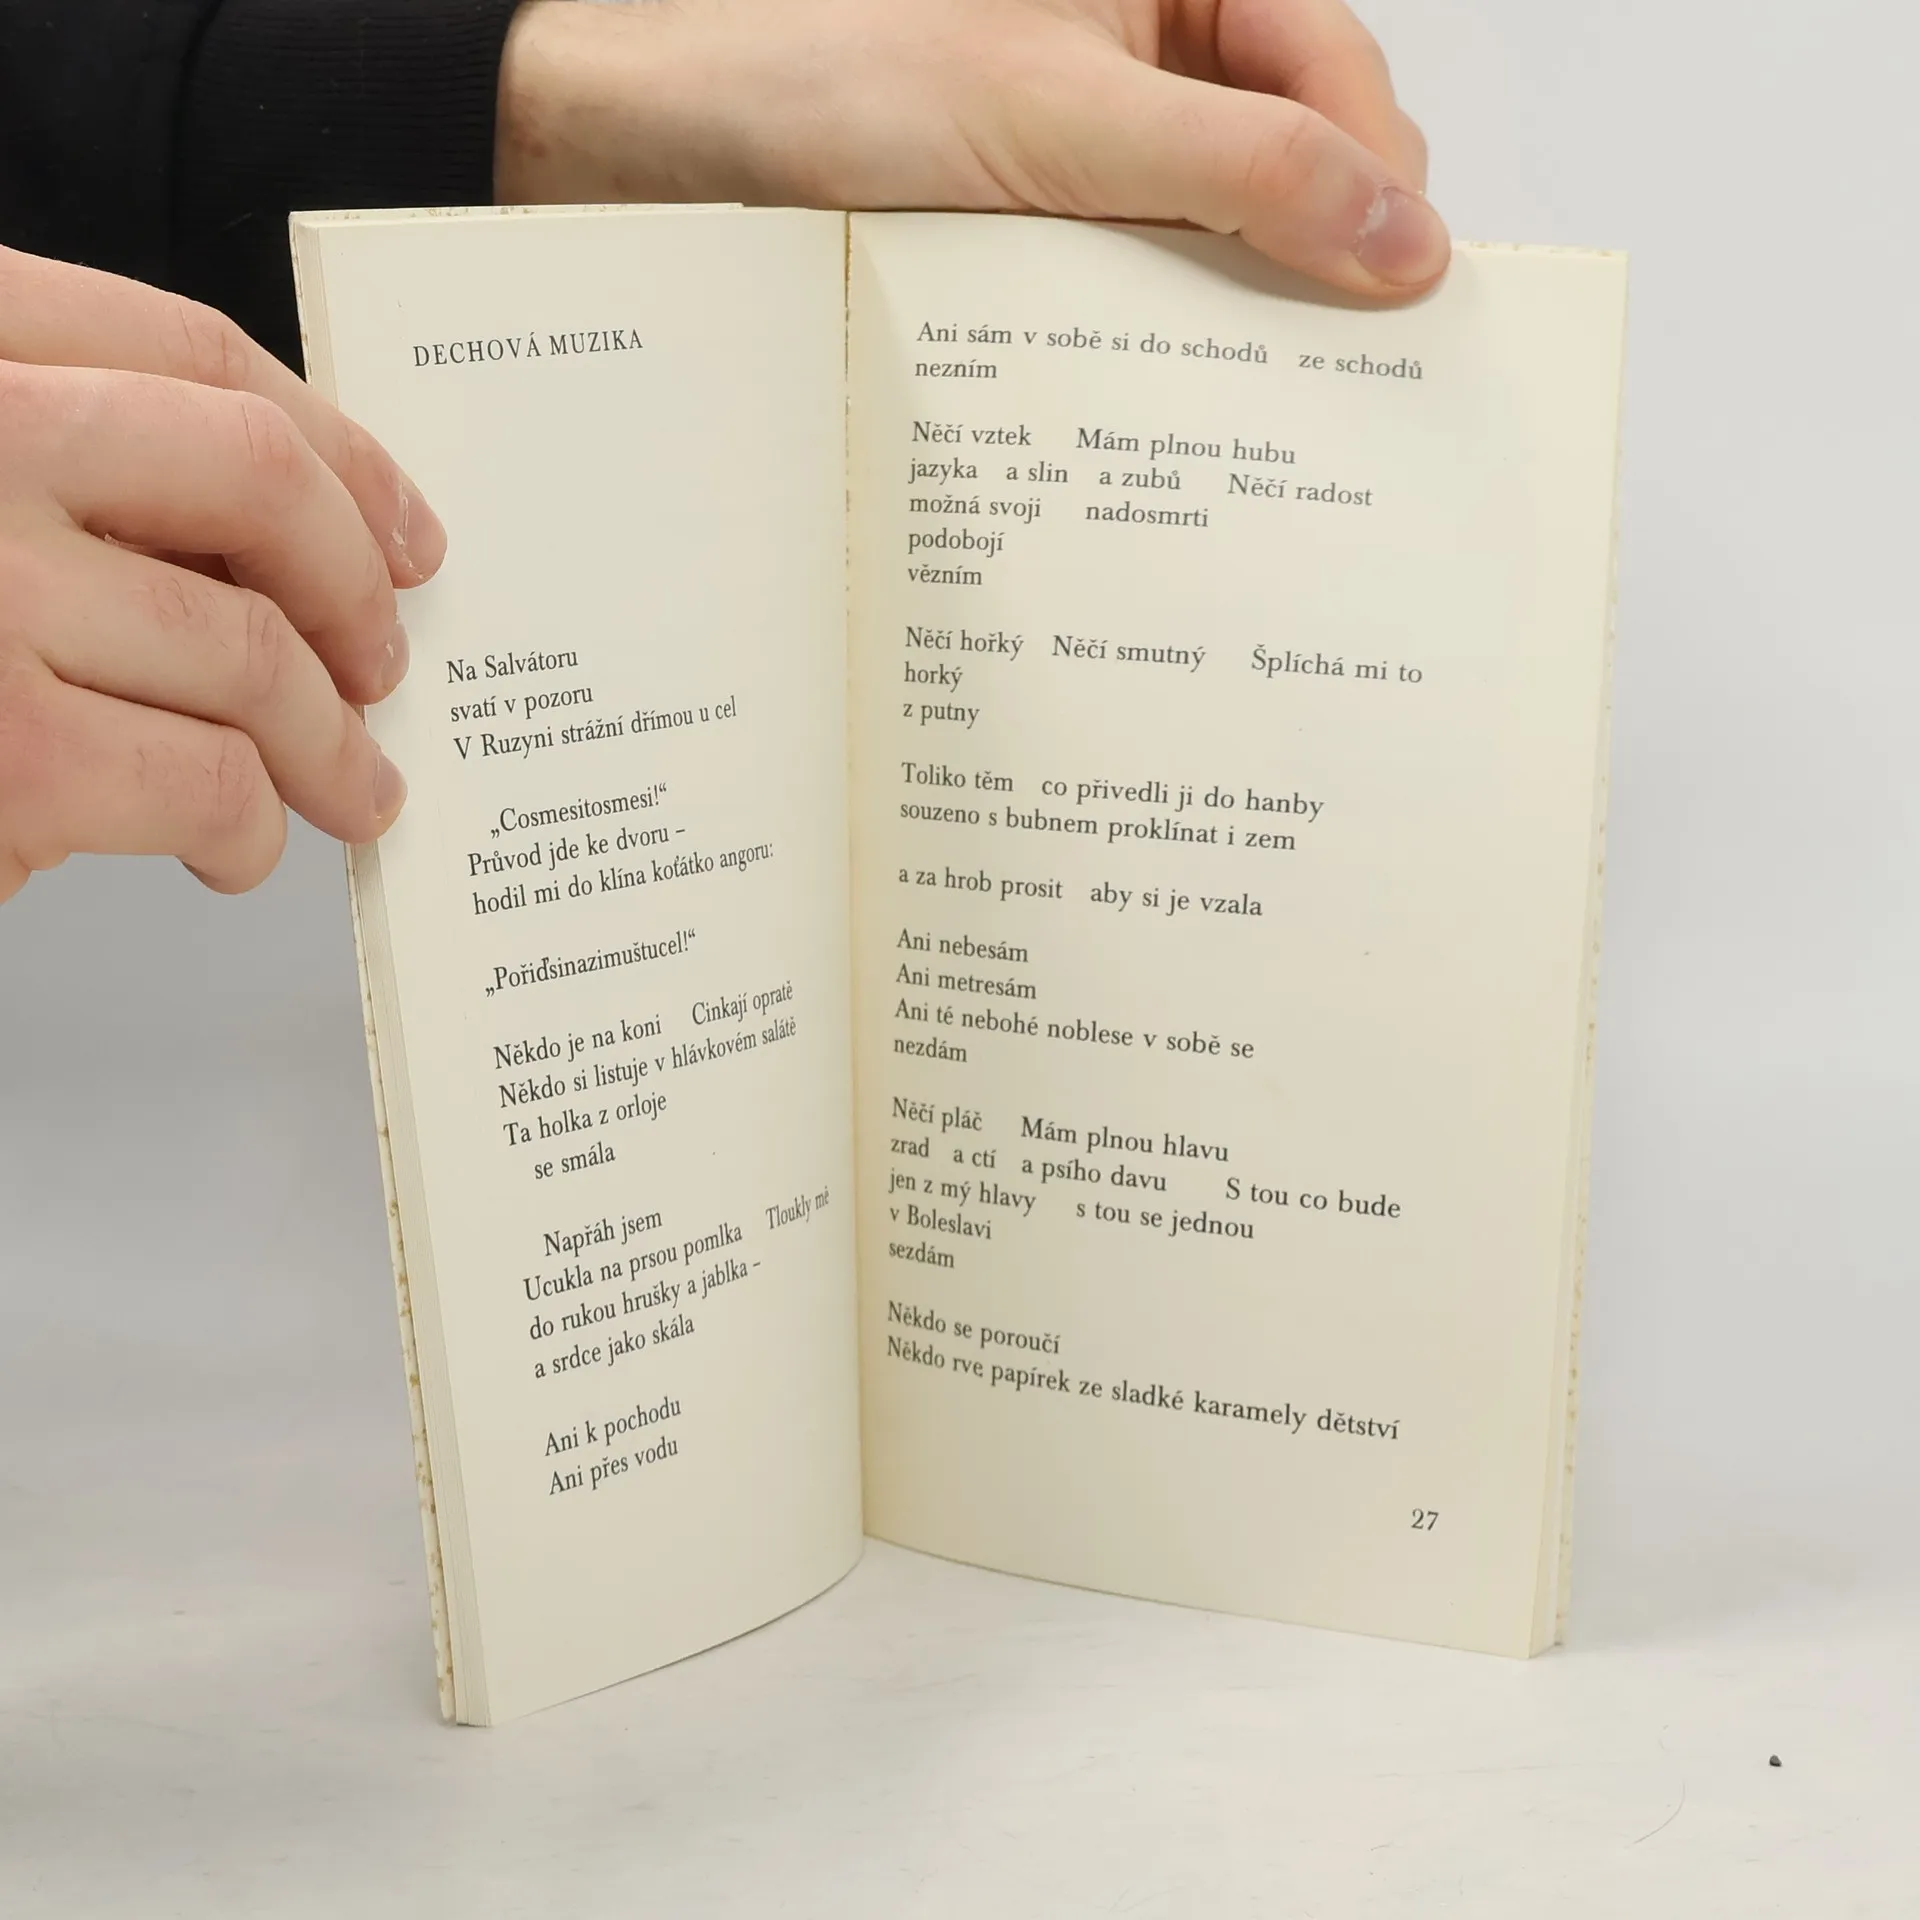 DECHOVÁ MUZIKA
Na Salvátoru
svatí v pozoru
V Ruzyni strážní dřímou u cel
„Cosmesitosmesi!“
Průvod jde ke dvoru –
hodil mi do klína koťátko angoru:
„Pořiďsinazimuštucel!“
Někdo je na koni Cinkají opratě
Někdo si listuje v hlávkovém salátě
Ta holka z orloje
se smála
Napřáh jsem
Ucukla na prsou pomlka Tloukly mé
do rukou hrušky a jablka –
a srdce jako skála
Ani k pochodu
Ani přes vodu
Ani sám v sobě si do schodů ze schodů
nezním
Něčí vztek Mám plnou hubu
jazyka a slin a zubů Něčí radost
možná svoji nadosmrti
podobojí
vězním
Něčí hořký Něčí smutný Šplíchá mi to
horký
z putny
Toliko těm co přivedli ji do hanby
souzeno s bubnem proklínat i zem
a za hrob prosit aby si je vzala
Ani nebesám
Ani metresám
Ani té nebohé noblese v sobě se
nezdám
Něčí pláč Mám plnou hlavu
zrad a ctí a psího davu S tou co bude
jen z mý hlavy s tou se jednou
v Boleslavi
sezdám
Někdo se poroučí
Někdo rve papírek ze sladké karamely dětství
27